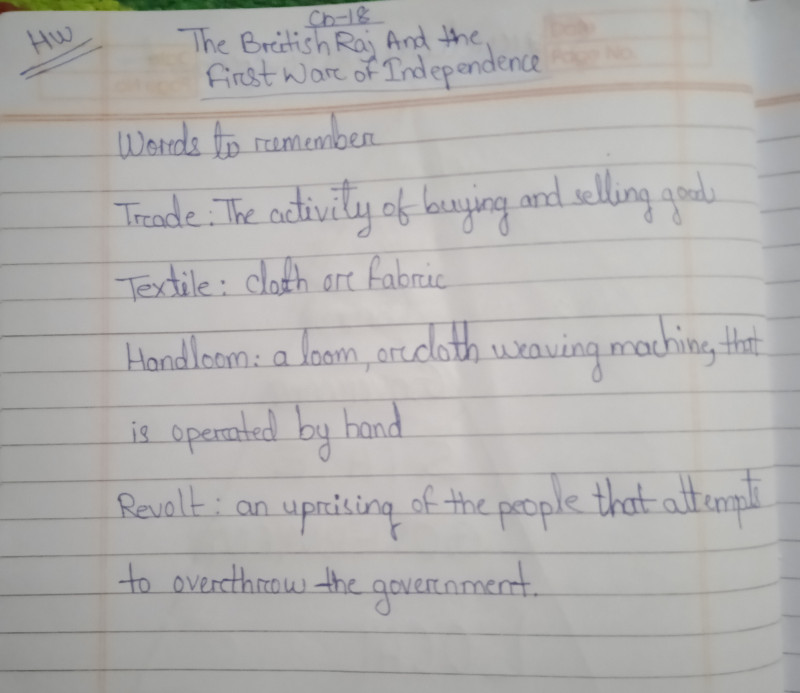 HW
Ch-18
The British Raj And the
First War of Independence
Words to remember
Trade: The activity of buying and selling goods
Textile: cloth or fabric
Handloom: a loom, or cloth weaving machine, that
is operated by hand
Revolt: an uprising of the people that attempts
to overthrow the government.